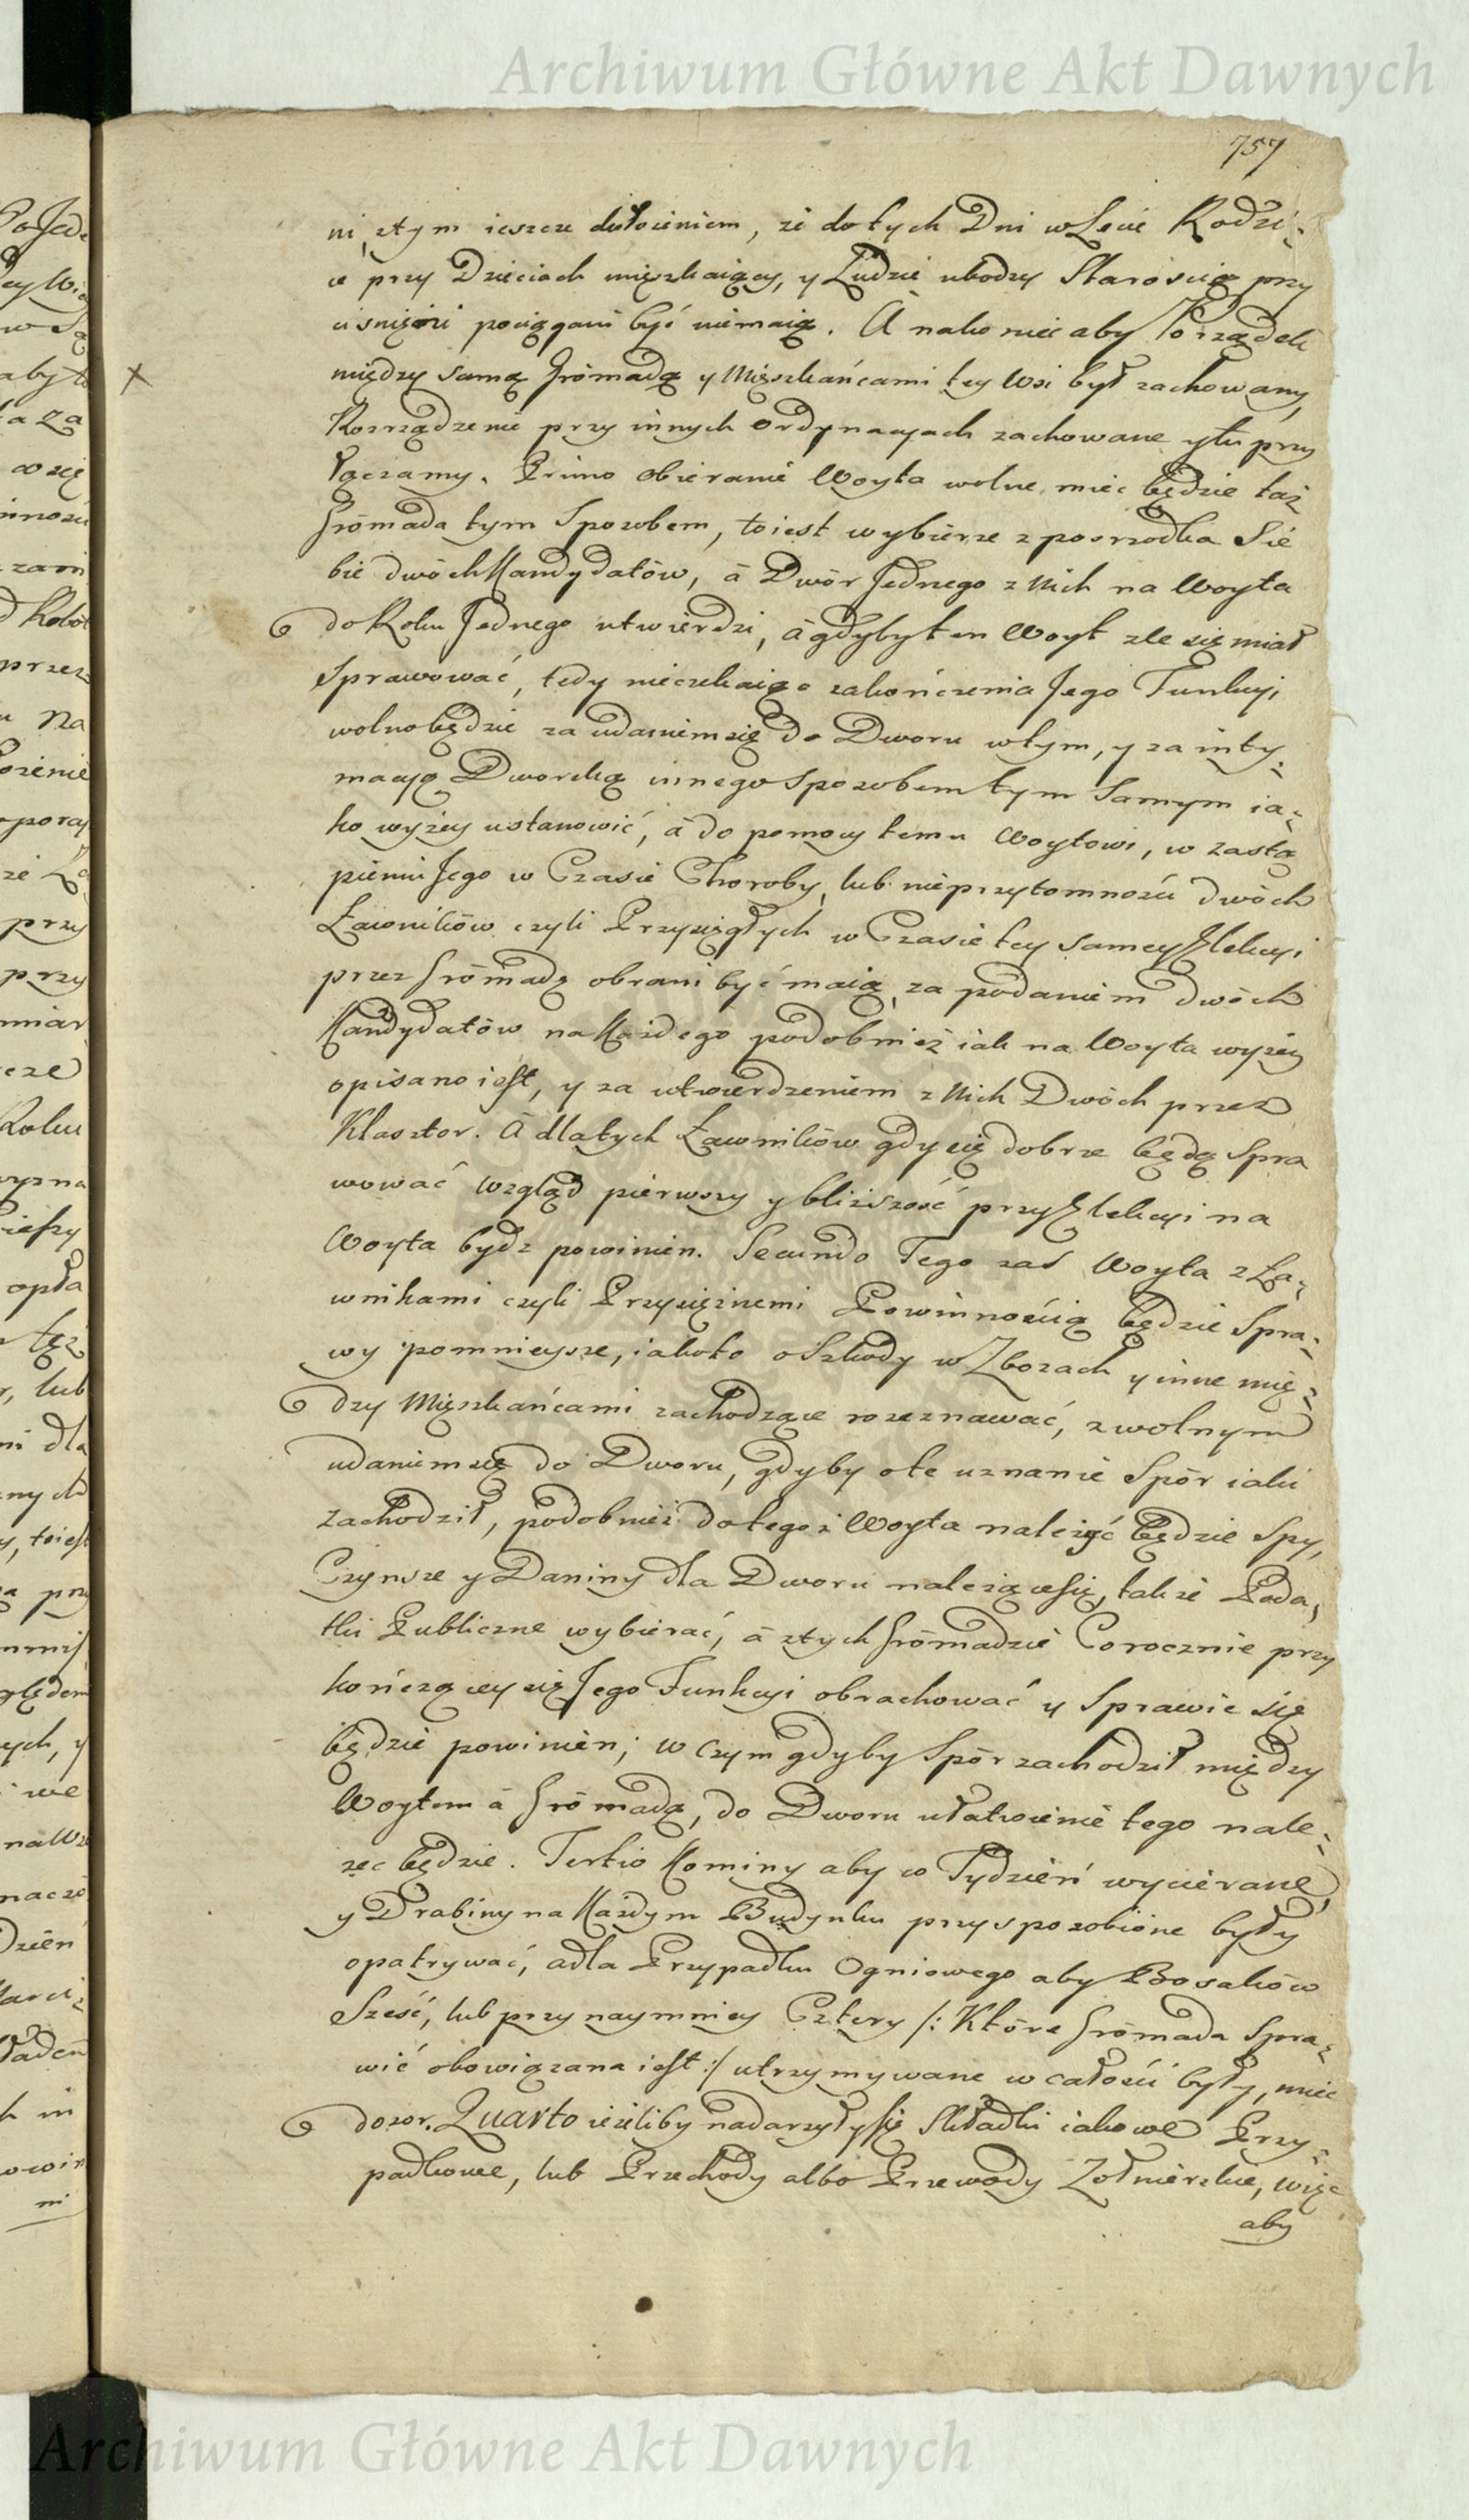 Archiwum Główne Akt Dawnych
757
ni, z tym ieszcze dołożeniem, że do tych Dni w Lecie Rodzi-
ce przy Dzieciach mięszkaiący, y Ludzie ubodzy Starością przy
ciśnięni pociągani być niemaią. A nakoniec aby Porządek
między samą Gromadą y Mięszkańcami tey Wsi był zachowany,
Rozrządzenie przy innych ordynacyach zachowane y tu przy
łączamy. Primo obieranie Woyta wolne miec będzie taż
Gromada tym Sposobem, toiest wybierze z posrzodka Sie
bie dwóch Kandydatów, á Dwór Jednego z Nich na Woyta
do Roku Jednego utwierdzi, á gdyby ten Woyt zle się miał
Sprawować, tedy nieczekaiąc zakończenia Jego Funkcyi
wolno będzie za udaniem się do Dworu w tym, y za inty-
macyą Dworską innego Sposobem tym Samym ia-
ko wyżey ustanowić, á do pomocy temu Woytowi, w zastą
pieniu Jego w Czasie Choroby, lub nieprzytomności dwóch
Ławników czyli Przysięgłych w Czasie tey samey Elekcyi
przez Gromadę obrani być maią, za podaniem dwóch
Kandydatów na Każdego podobnież iak na Woyta wyżey
opisano iest, y za utwierdzeniem z Nich Dwóch przez
Klasztor. A dla tych Ławników gdy się dobrze będą Spra
wować wzgląd pierwszy y bliższość przy Elekcyi na
Woyta bydz powinien. Secundo Tego zaś Woyta z Ła-
wnikami czyli Przysiężnemi Powinnością będzie Spra-
wy pomnieysze, iakoto o Szkody w Zbożach y inne mię-
dzy Mięszkańcami zachodzące rozeznawać, z wolnym
udaniem się do Dworu, gdyby o te uznanie Spór iaki
zachodził, podobnież do tegoż Woyta należyć będzie Spy,
Czynsze y Daniny dla Dworu należące się, także Poda-
tki Publiczne wybierać, á z tych Gromadzie Corocznie przy
kończącey się Jego Funkcyi obrachować y Sprawić się
będzie powinien; w czym gdyby Spór zachodził między
Woytem á Gromadą, do Dworu ułatwienie tego nale-
żec będzie. Tertio Kominy aby w Tydzień wycierane,
y Drabiny na Każdym Budynku przysposobione były
opatrywać, a dla Przypadku Ogniowego aby Bosaków
Sześć, lub przynaymniey Cztery /: Które Gromada Spra-
wić obowiązana iest :/ utrzymywane w całości były, mieć
dozor. Quarto ieżeliby nadarzyły się Składki iakowe Przy-
padkowe, lub Przechody albo Przewody Zołnierskie, więc
aby
Archiwum Główne Akt Dawnych